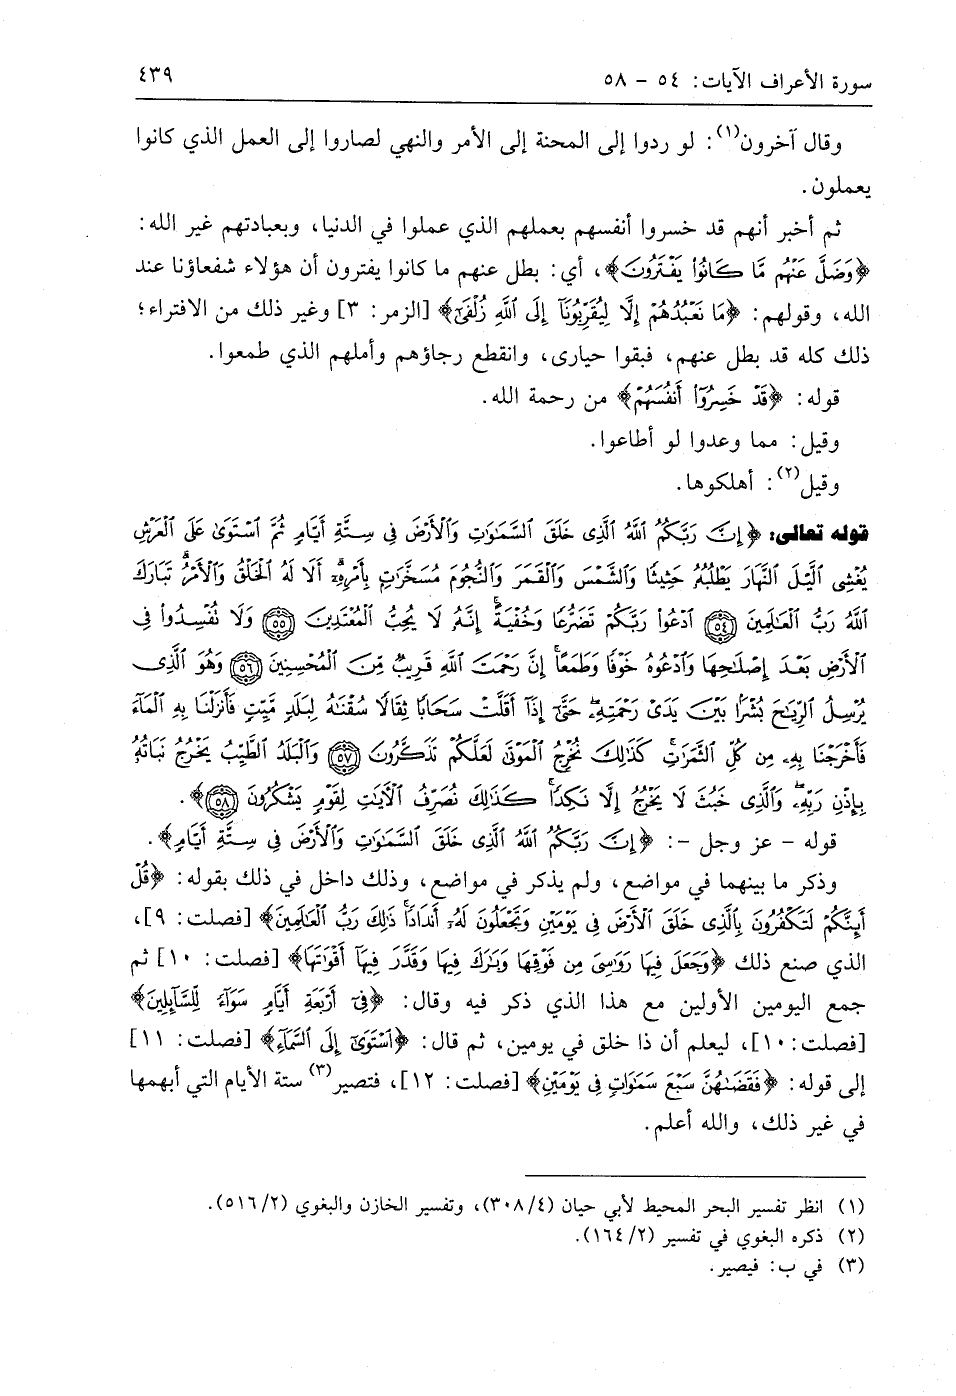 سورة الأعراف الآيات: ٥٤ - ٥٨
٤٣٩
وقال آخرون(١): لو ردوا إلى المحنة إلى الأمر والنهي لصاروا إلى العمل الذي كانوا
يعملون.
ثم أخبر أنهم قد خسروا أنفسهم بعملهم الذي عملوا في الدنيا، وبعبادتهم غير الله:
﴿وَضَلَّ عَنْهُم مَّا كَانُوا۟ يَفْتَرُونَ﴾، أي: بطل عنهم ما كانوا يفترون أن هؤلاء شفعاؤنا عند
الله، وقولهم: ﴿مَا نَعْبُدُهُمْ إِلَّا لِيُقَرِّبُونَآ إِلَى ٱللَّهِ زُلْفَىٰٓ﴾ [الزمر: ٣] وغير ذلك من الافتراء؛
ذلك كله قد بطل عنهم، فبقوا حيارى، وانقطع رجاؤهم وأملهم الذي طمعوا.
قوله: ﴿قَدْ خَسِرُوٓا۟ أَنفُسَهُمْ﴾ من رحمة الله.
وقيل: مما وعدوا لو أطاعوا.
وقيل(٢): أهلكوها.
قوله تعالى: ﴿إِنَّ رَبَّكُمُ ٱللَّهُ ٱلَّذِى خَلَقَ ٱلسَّمَٰوَٰتِ وَٱلْأَرْضَ فِى سِتَّةِ أَيَّامٍ ثُمَّ ٱسْتَوَىٰ عَلَى ٱلْعَرْشِ
يُغْشِى ٱلَّيْلَ ٱلنَّهَارَ يَطْلُبُهُۥ حَثِيثًا وَٱلشَّمْسَ وَٱلْقَمَرَ وَٱلنُّجُومَ مُسَخَّرَٰتٍۭ بِأَمْرِهِۦٓ ۗ أَلَا لَهُ ٱلْخَلْقُ وَٱلْأَمْرُ ۗ تَبَارَكَ
ٱللَّهُ رَبُّ ٱلْعَٰلَمِينَ ﴿٥٤﴾ ٱدْعُوا۟ رَبَّكُمْ تَضَرُّعًا وَخُفْيَةً ۚ إِنَّهُۥ لَا يُحِبُّ ٱلْمُعْتَدِينَ ﴿٥٥﴾ وَلَا تُفْسِدُوا۟ فِى
ٱلْأَرْضِ بَعْدَ إِصْلَٰحِهَا وَٱدْعُوهُ خَوْفًا وَطَمَعًا ۚ إِنَّ رَحْمَتَ ٱللَّهِ قَرِيبٌ مِّنَ ٱلْمُحْسِنِينَ ﴿٥٦﴾ وَهُوَ ٱلَّذِى
يُرْسِلُ ٱلرِّيَٰحَ بُشْرًۢا بَيْنَ يَدَىْ رَحْمَتِهِۦ ۖ حَتَّىٰٓ إِذَآ أَقَلَّتْ سَحَابًا ثِقَالًا سُقْنَٰهُ لِبَلَدٍ مَّيِّتٍ فَأَنزَلْنَا بِهِ ٱلْمَآءَ
فَأَخْرَجْنَا بِهِۦ مِن كُلِّ ٱلثَّمَرَٰتِ ۚ كَذَٰلِكَ نُخْرِجُ ٱلْمَوْتَىٰ لَعَلَّكُمْ تَذَكَّرُونَ ﴿٥٧﴾ وَٱلْبَلَدُ ٱلطَّيِّبُ يَخْرُجُ نَبَاتُهُۥ
بِإِذْنِ رَبِّهِۦ ۖ وَٱلَّذِى خَبُثَ لَا يَخْرُجُ إِلَّا نَكِدًا ۚ كَذَٰلِكَ نُصَرِّفُ ٱلْءَايَٰتِ لِقَوْمٍ يَشْكُرُونَ ﴿٥٨﴾﴾.
قوله - عز وجل -: ﴿إِنَّ رَبَّكُمُ ٱللَّهُ ٱلَّذِى خَلَقَ ٱلسَّمَٰوَٰتِ وَٱلْأَرْضَ فِى سِتَّةِ أَيَّامٍ﴾.
وذكر ما بينهما في مواضع، ولم يذكر في مواضع، وذلك داخل في ذلك بقوله: ﴿قُلْ
أَئِنَّكُمْ لَتَكْفُرُونَ بِٱلَّذِى خَلَقَ ٱلْأَرْضَ فِى يَوْمَيْنِ وَتَجْعَلُونَ لَهُۥٓ أَندَادًا ۚ ذَٰلِكَ رَبُّ ٱلْعَٰلَمِينَ﴾ [فصلت: ٩]،
الذي صنع ذلك ﴿وَجَعَلَ فِيهَا رَوَٰسِىَ مِن فَوْقِهَا وَبَٰرَكَ فِيهَا وَقَدَّرَ فِيهَآ أَقْوَٰتَهَا﴾ [فصلت: ١٠] ثم
جمع اليومين الأولين مع هذا الذي ذكر فيه وقال: ﴿فِىٓ أَرْبَعَةِ أَيَّامٍ سَوَآءً لِّلسَّآئِلِينَ﴾
[فصلت: ١٠]، ليعلم أن ذا خلق في يومين، ثم قال: ﴿ٱسْتَوَىٰٓ إِلَى ٱلسَّمَآءِ﴾ [فصلت: ١١]
إلى قوله: ﴿فَقَضَىٰهُنَّ سَبْعَ سَمَٰوَاتٍ فِى يَوْمَيْنِ﴾ [فصلت: ١٢]، فتصير(٣) ستة الأيام التي أبهمها
في غير ذلك، والله أعلم.
(١) انظر تفسير البحر المحيط لأبي حيان (٣٠٨/٤)، وتفسير الخازن والبغوي (٥١٦/٢).
(٢) ذكره البغوي في تفسير (١٦٤/٢).
(٣) في ب: فيصير.